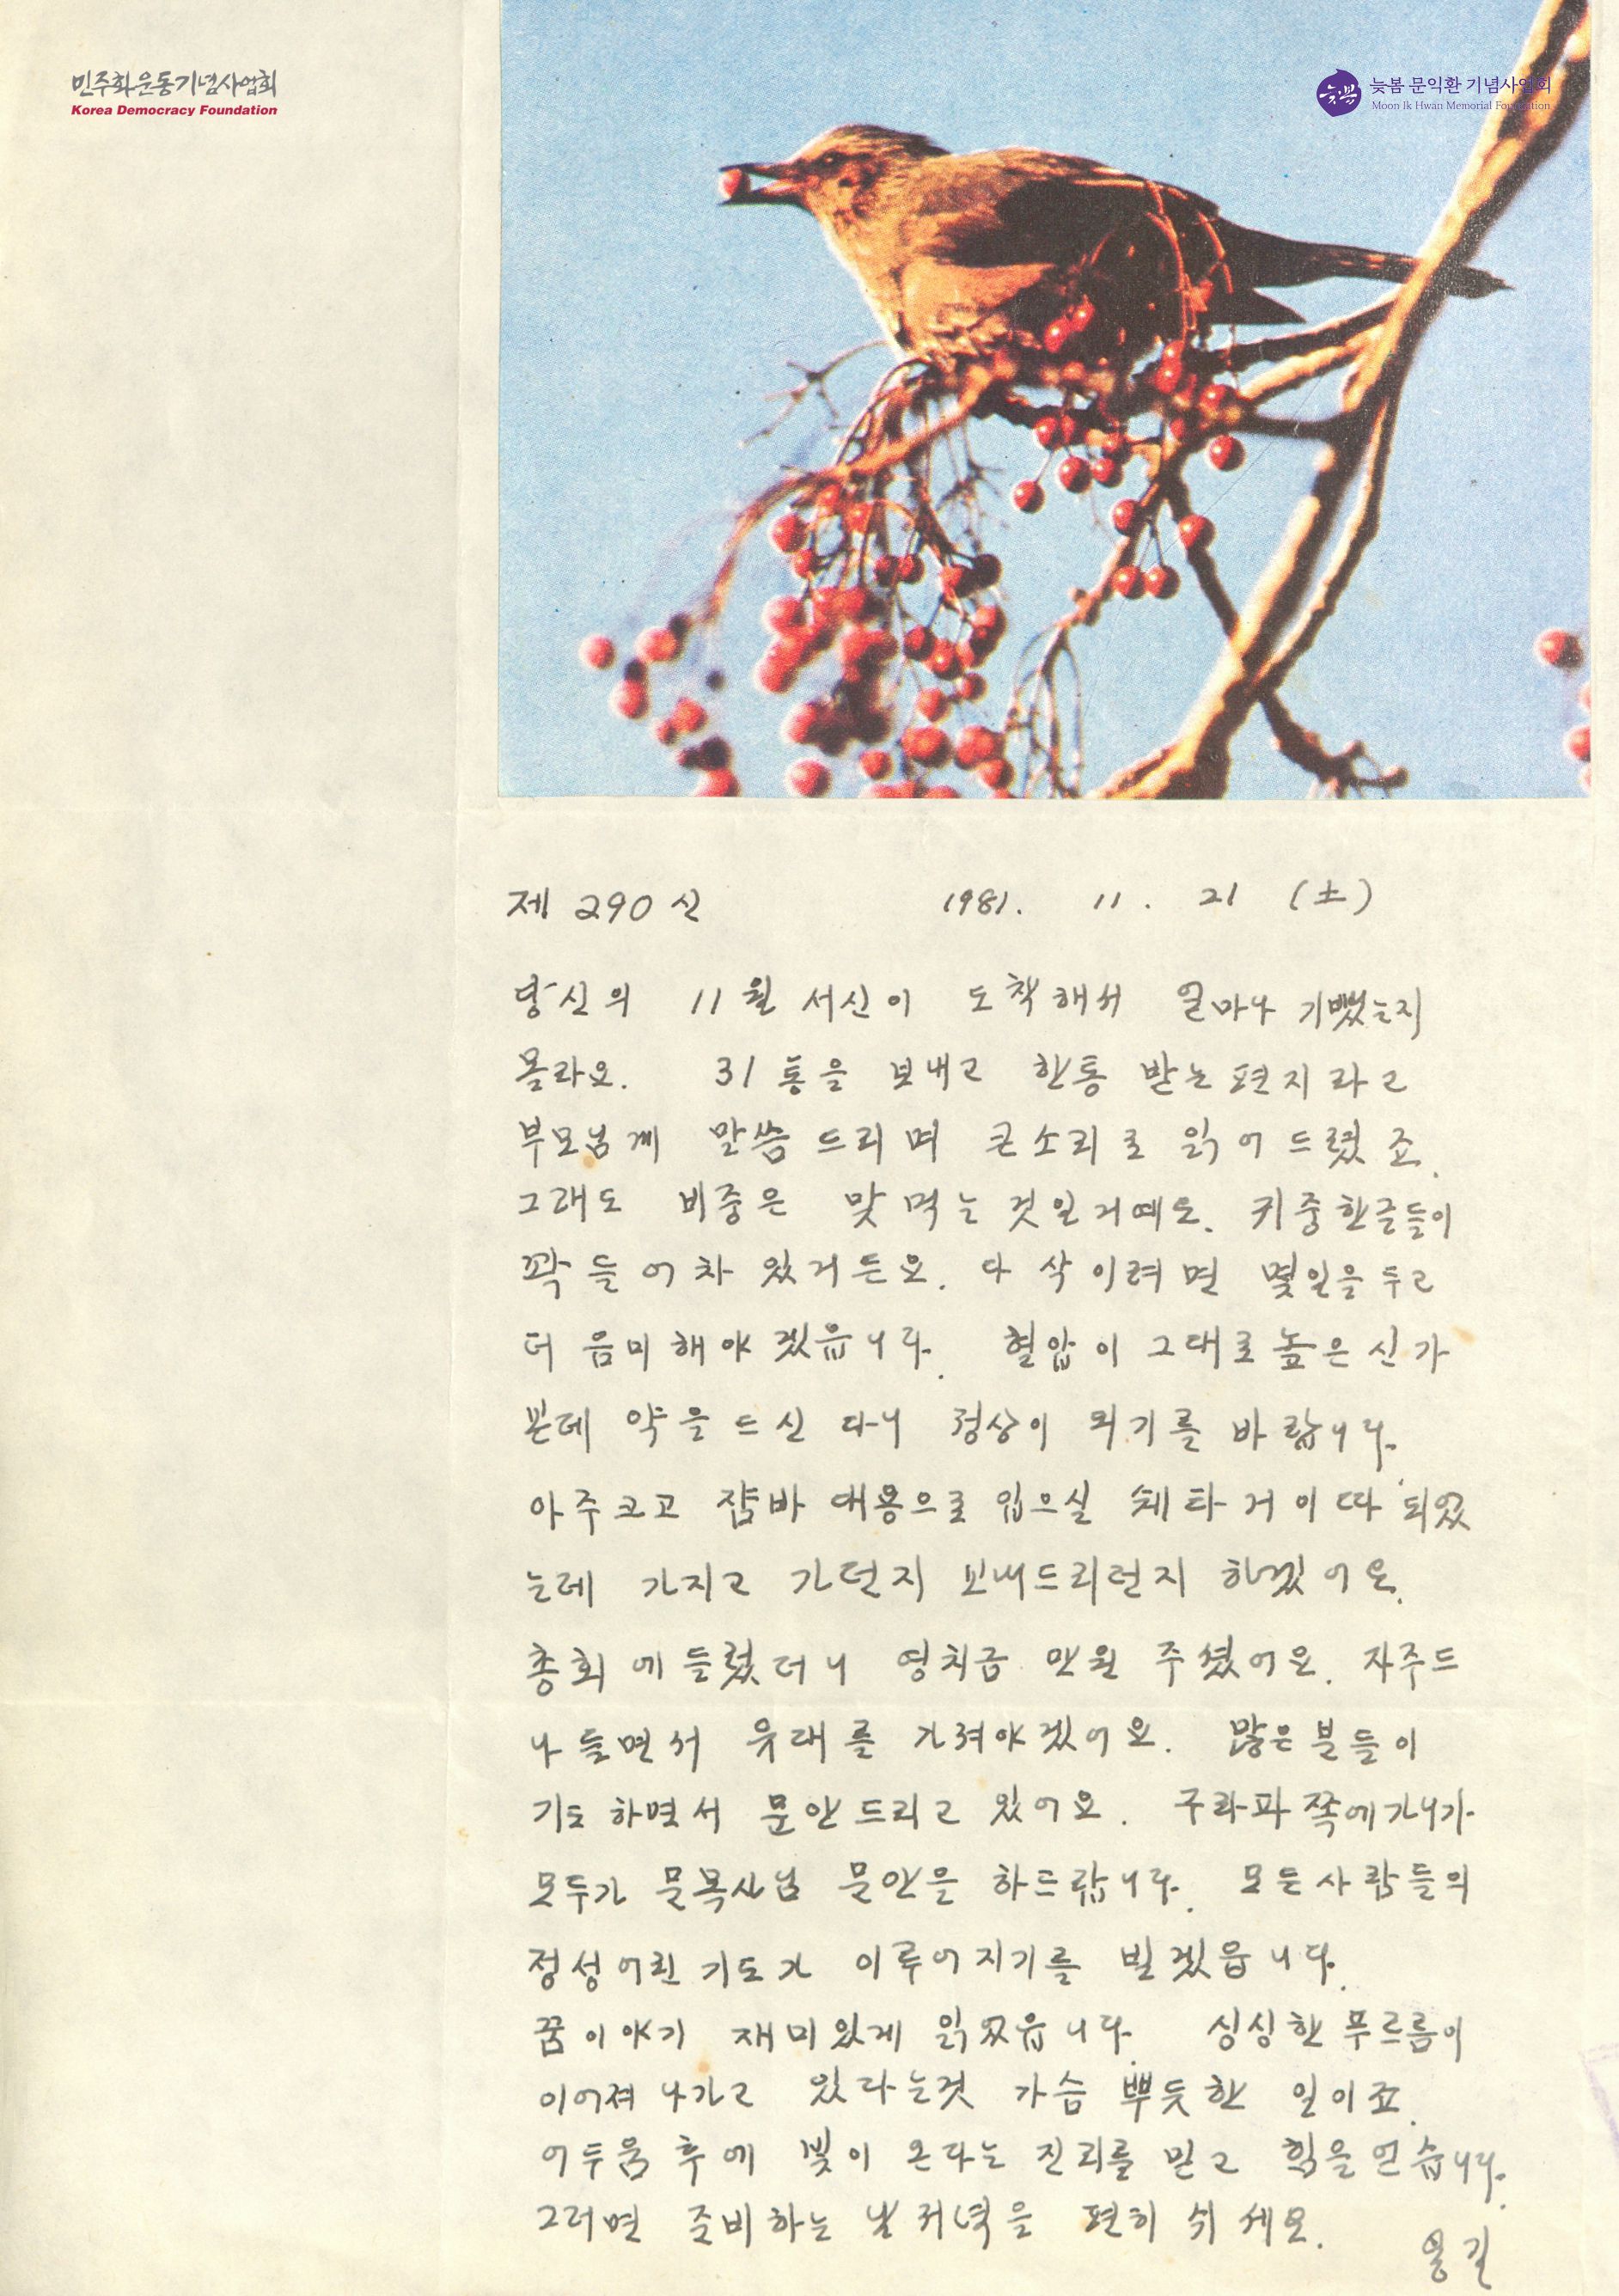 민주화운동기념사업회
Korea Democracy Foundation
늦봄
늦봄 문익환 기념사업회
Moon Ik Hwan Memorial Foundation
제 290 신 1981. 11. 21 (土)
당신의 11월 서신이 도착해서 얼마나 기뻤는지
몰라요. 31통을 보내고 한통 받는 편지라고
부모님께 말씀드리며 큰소리로 읽어 드렸죠.
그래도 비중은 맞먹는 것일거예요. 귀중한글들이
꽉 들어차 있거든요. 다 삭이려면 몇일을 두고
더 음미해야 겠읍니다. 혈압이 그대로 높은신가
본데 약을 드신다니 정상이 되기를 바랍니다.
아주크고 잠바 대용으로 입으실 쉐타 거이따 되었
는데 가지고 가던지 보내드리던지 하겠어요.
총회에 들렸더니 영치금 만원 주셨어요. 자주드
나들면서 유대를 가져야겠어요. 많은분들이
기도하면서 문안드리고 있어요. 구라파 쪽에가니가
모두가 문목사님 문안을 하드랍니다. 모든사람들의
정성어린 기도가 이루어지기를 빌겠읍니다.
꿈이야기 재미있게 읽었읍니다. 싱싱한 푸르름이
이어져 나가고 있다는것 가슴 뿌듯한 일이죠.
어두움 후에 빛이 온다는 진리를 믿고 힘을 얻습니다.
그러면 준비하는 날 저녁을 편히 쉬세요.
용길